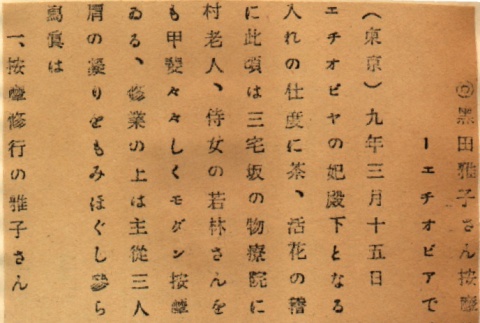 ◎黒田雅子さん按摩
ーエチオピアで
(東京)九年三月十五日
エチオピヤの妃殿下となる
入れの仕度に茶、活花の稽
に此頃は三宅坂の物療院に
村老人、侍女の若林さんを
も甲斐々々しくモダン按摩
ゐる、修業の上は主従三人
肩の凝りをもみほぐし
寫眞は
一、按摩修行の雅子さん